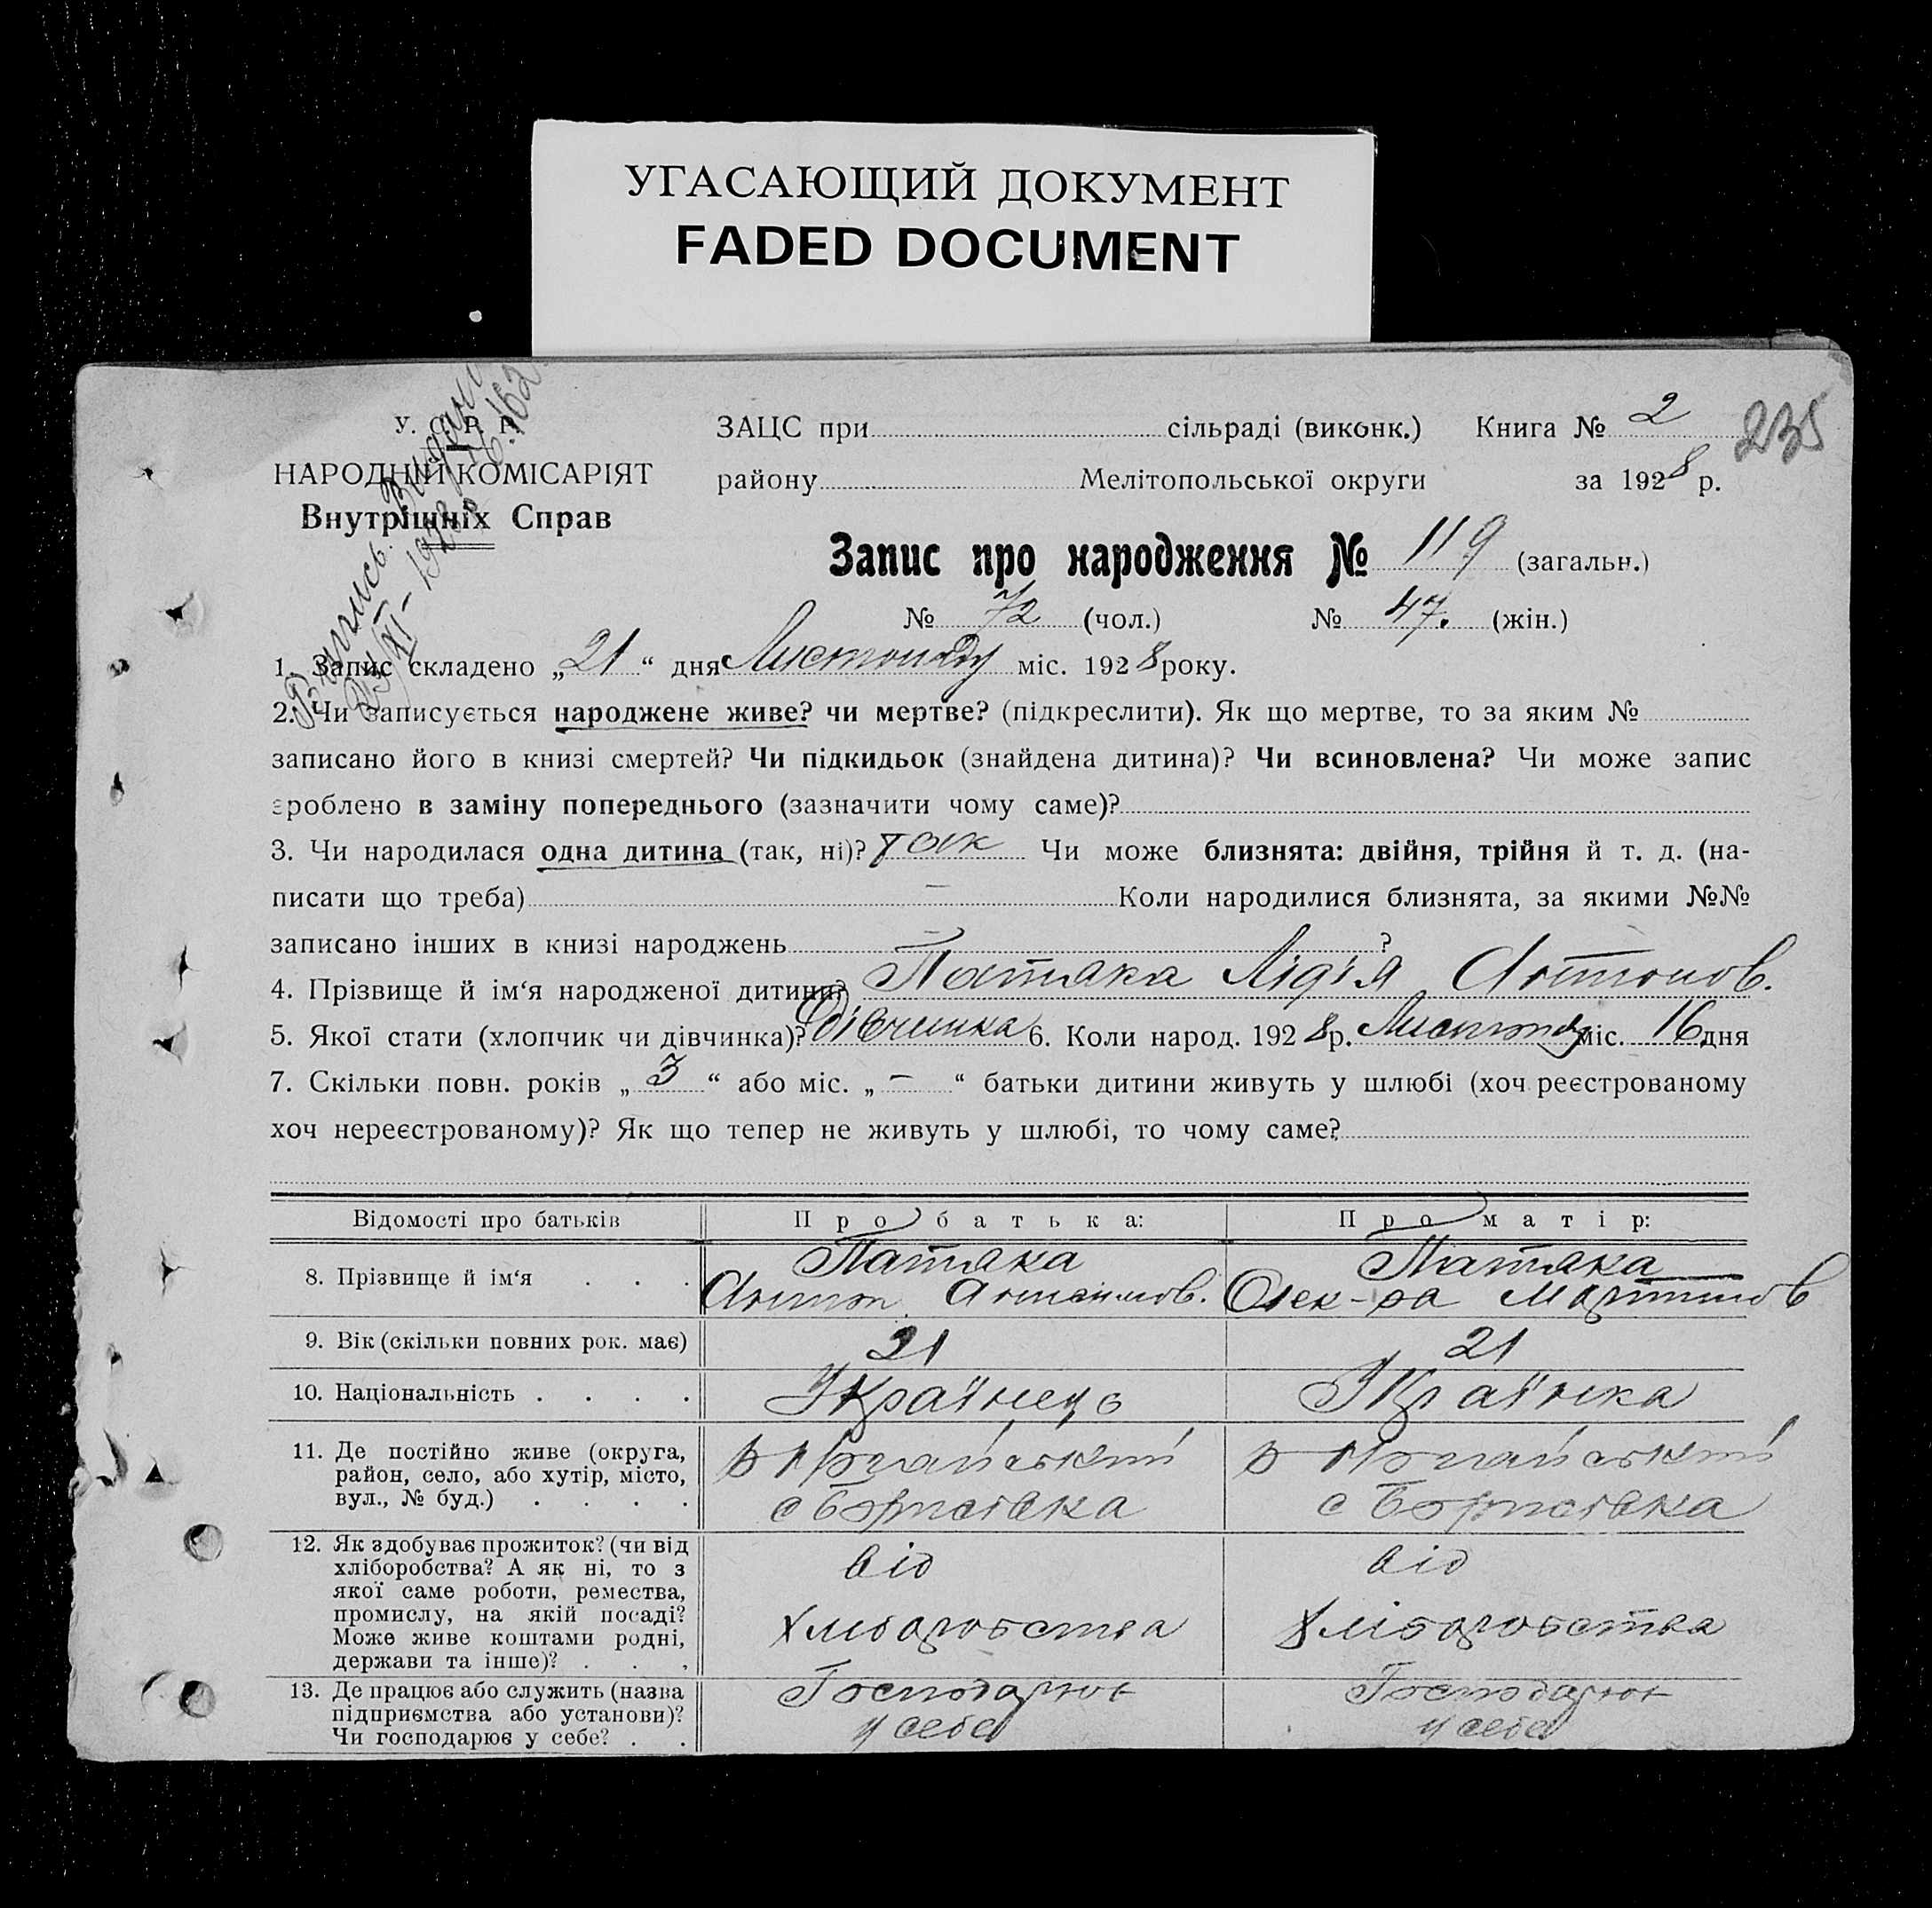 УГАСАЮЩИЙ ДОКУМЕНТ
FADED DOCUMENT
У. С. Р. Р.
НАРОДНІЙ КОМІСАРІЯТ
Внутрішніх Справ
Розпись. Видано
21/XI-1928 р. № 162
ЗАЦС при сільраді (виконк.) Книга № 2
235
району Мелітопольської округи за 1928 р.
Запис про народження № 119 (загальн.)
№ 72 (чол.) № 47. (жін.)
1. Запис складено „21“ дня Листопаду міс. 1928 року.
2. Чи записується народжене живе? чи мертве? (підкреслити). Як що мертве, то за яким №
записано його в книзі смертей? Чи підкидьок (знайдена дитина)? Чи всиновлена? Чи може запис
зроблено в заміну попереднього (зазначити чому саме)?
3. Чи народилася одна дитина (так, ні)? так Чи може близнята: двійня, трійня й т. д. (на-
писати що треба) – Коли народилися близнята, за якими №№
записано інших в книзі народжень – ?
4. Прізвище й ім‘я народженої дитини? Патяка Лідія Антонов.
5. Якої стати (хлопчик чи дівчинка)? дівчинка 6. Коли народ. 1928 р. Листопад міс. 16 дня
7. Скільки повн. років „3“ або міс. „–“ батьки дитини живуть у шлюбі (хоч реєстрованому
хоч нереєстрованому)? Як що тепер не живуть у шлюбі, то чому саме?
Відомості про батьків Про батька: Про матір:
8. Прізвище й ім‘я . . . Патяка Патяка
Антон Олек-ра Мартинов
9. Вік (скільки повних рок. має) 21 21
10. Національність . . . . Українець Українка
11. Де постійно живе (округа,
район, село, або хутір, місто,
вул., № буд.) . . . .
в Ногайський в Ногайський
с Борисівка с Борисівка
12. Як здобуває прожиток? (чи від
хліборобства? А як ні, то з
якої саме роботи, ремества,
промислу, на якій посаді?
Може живе коштами родні,
держави та інше)? . . .
від від
хліборобства хліборобства
13. Де працює або служить (назва
підприємства або установи)?
Чи господарює у себе? . .
Господарює Господарює
у себе у себе